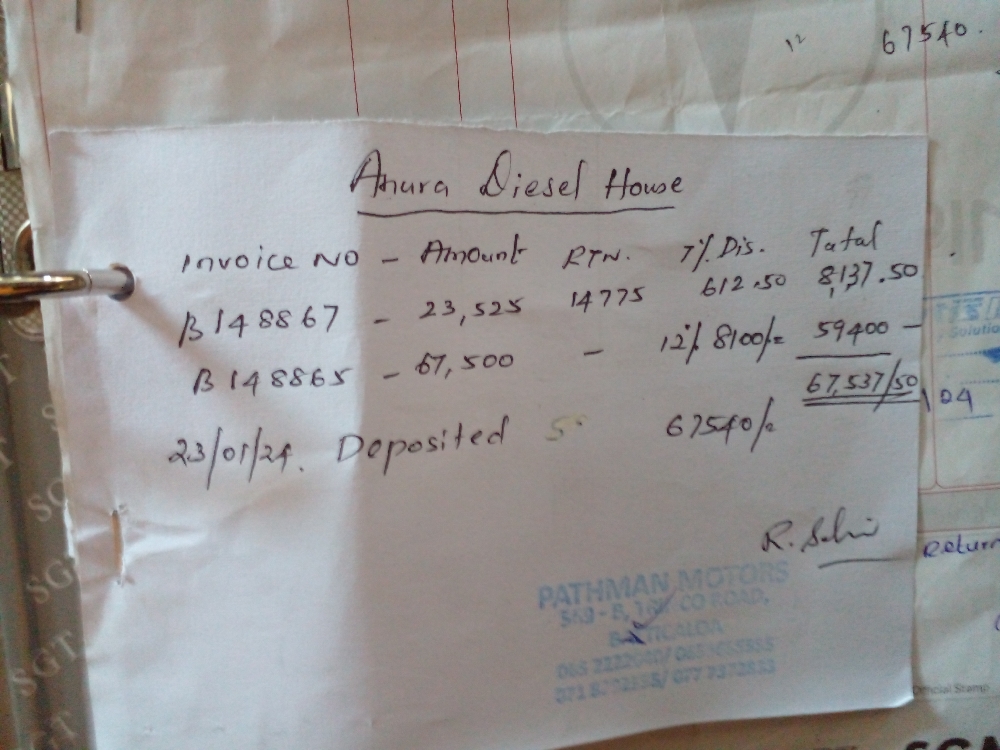 12 67540.
Anura Diesel House
Invoice NO - Amount RTN. 7% Dis. Tatal
B148867 - 23,525 14775 612.50 8,137.50
B148865 - 67,500 - 12% 8100/= 59400 -
67,537/50
23/01/24. Deposited 67540/=
R.
PATHMAN MOTORS
CO ROAD,
BATTICALOA
Return
Official Stamp
SGT
SGT
SGT